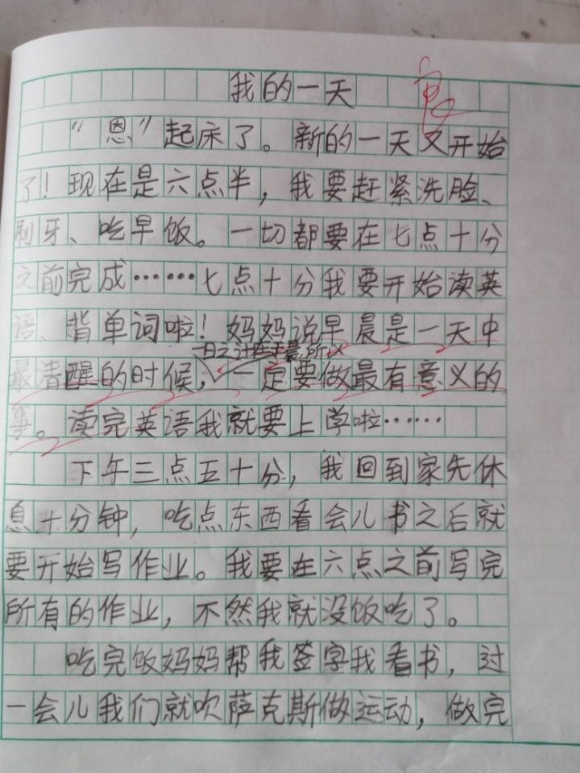 我的一天
“恩”起床了。新的一天又开始
了！现在是六点半，我要赶紧洗脸、
刷牙、吃早饭。一切都要在七点十分
之前完成……七点十分我要开始读英
语、背单词啦！妈妈说早晨是一天中
日之计在于晨,所以
最清醒的时候，一定要做最有意义的
事。读完英语我就要上学啦……
下午三点五十分，我回到家先休
息十分钟，吃点东西看会儿书之后就
要开始写作业。我要在六点之前写完
所有的作业，不然我就没饭吃了。
吃完饭妈妈帮我签字我看书，过
一会儿我们就吹萨克斯做运动，做完